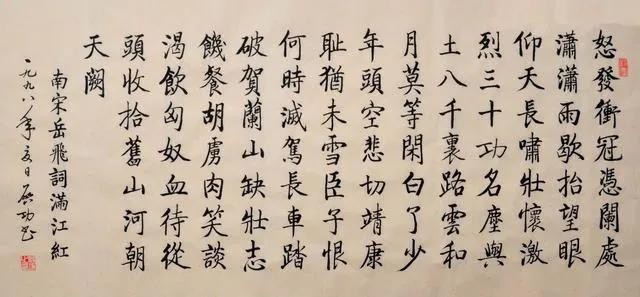 怒發衝冠憑闌處
瀟瀟雨歇抬望眼
仰天長嘯壯懷激
烈三十功名塵與
土八千裏路雲和
月莫等閑白了少
年頭空悲切靖康
耻猶未雪臣子恨
何時滅駕長車踏
破賀蘭山缺壯志
饑餐胡虜肉笑談
渴飲匈奴血待從
頭收拾舊山河朝
天闕
南宋岳飛詞滿江紅
一九九八年夏日啟功書